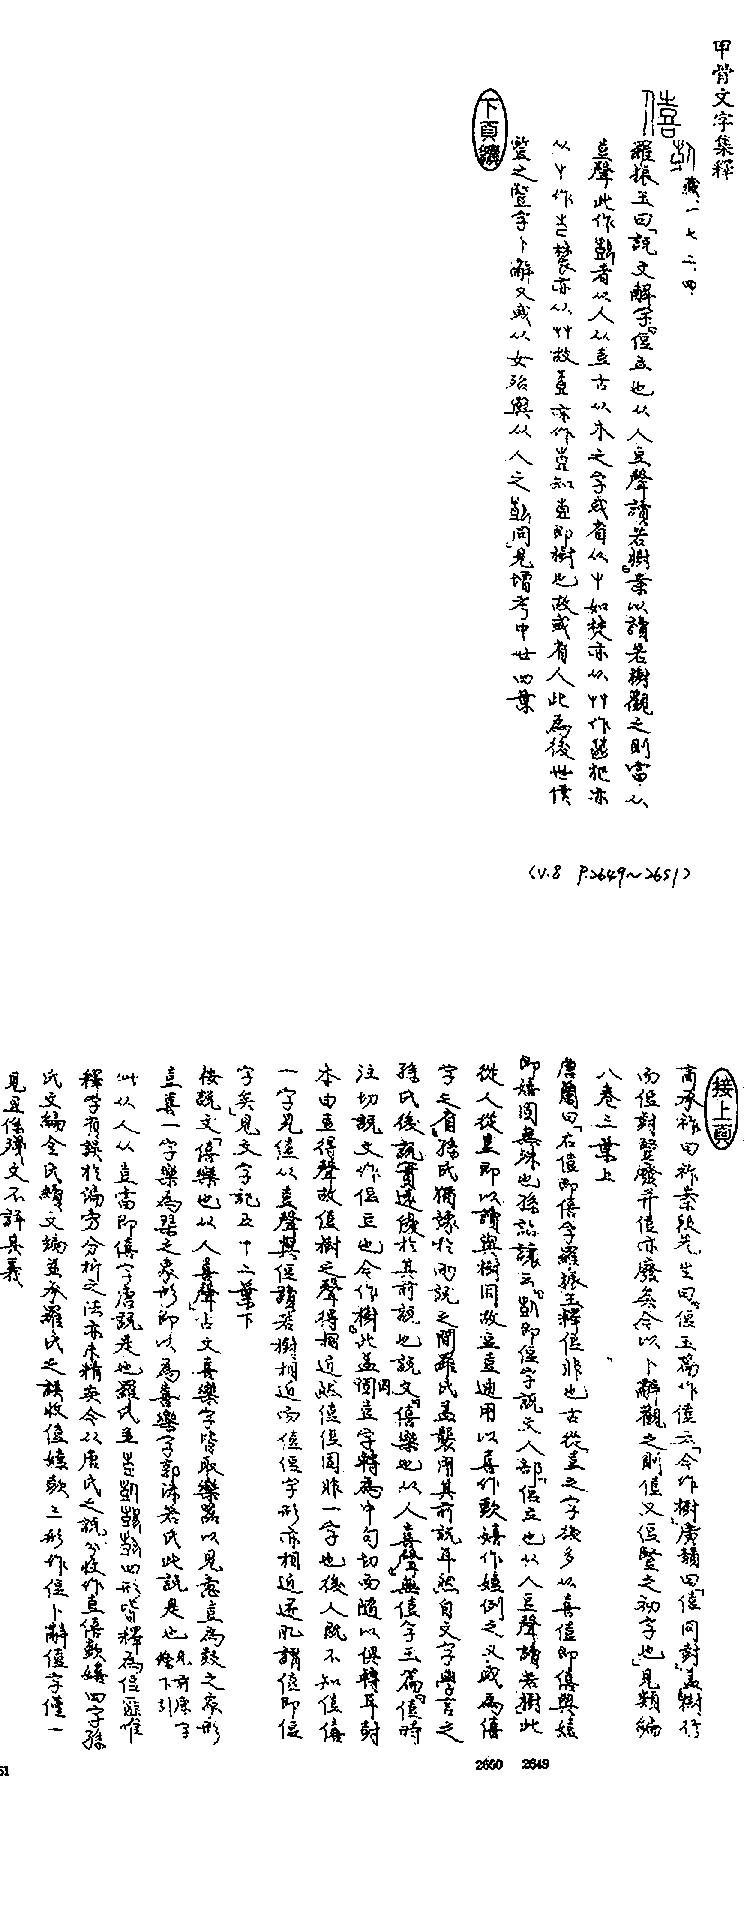 甲骨文字集釋
僖
藏一七二、四
羅振玉曰「說文解字『侸立也从人豆聲讀若樹』案以讀若樹觀之則當从
壴聲此作者从人从壴古从木之字或省从屮如焚亦从艸作杞亦
从屮作𣎳亦从艸故壴亦作知壴即樹也故或有人此為後世僕
豎之豎字卜辭又或从女殆與从人之同」見增考中廿四葉
下頁續
(V.8 P.2649~2651)
接上頁
商承祚曰祚案級先生曰『侸玉篇作偡云「今作樹」廣韻曰「偡同尌」蓋樹行
而侸尌豎廢并偡亦廢矣今以卜辭觀之則偡又侸豎之初字也』見類編
八卷三葉上
唐蘭曰「右偡即僖字羅振玉釋侸非也古從壴之字後多以喜偡即僖與嬉
即嬉固無殊也孫詒讓云『即侸字說文人部「侸立也从人豆聲讀若樹」此
從人從壴即以讀與樹同故豆壴通用以喜作歖嬉作嬉例之又或為僖
字』之省孫氏猶豫於兩說之間羅氏蓋襲用其前說耳然自文字學言之
孫氏後說實遠優於其前說也說文『僖樂也从人喜聲』無偡字玉篇『偡時
注切說文作侸立也今作樹』此蓋因壴字轉為中句切而隨以俱轉耳尌
本由壴得聲故偡樹之聲得相近然偡侸固非一字也後人既不知偡僖
一字見偡以壴聲與侸讀若樹相近而偡侸字形亦相近遂肊謂偡即侸
字矣」見文字記五十二葉下
按說文「僖樂也从人喜聲」古文喜樂字皆取樂器以見意壴為鼓之象形
壴喜一字樂為琴之象形即以為喜樂字郭沫若氏此說是也見前康字條下引
此从人从壴當即僖字唐說是也羅氏並四形皆釋為侸豎唯
釋字有誤於偏旁分析之法亦未精密今从唐氏之說分收作壴僖歖嬉四字孫
氏文編金氏續文編並本羅氏之誤收偡嬉歖三形作侸卜辭偡字僅一
見且係殘文不詳其義
2650 2649
51